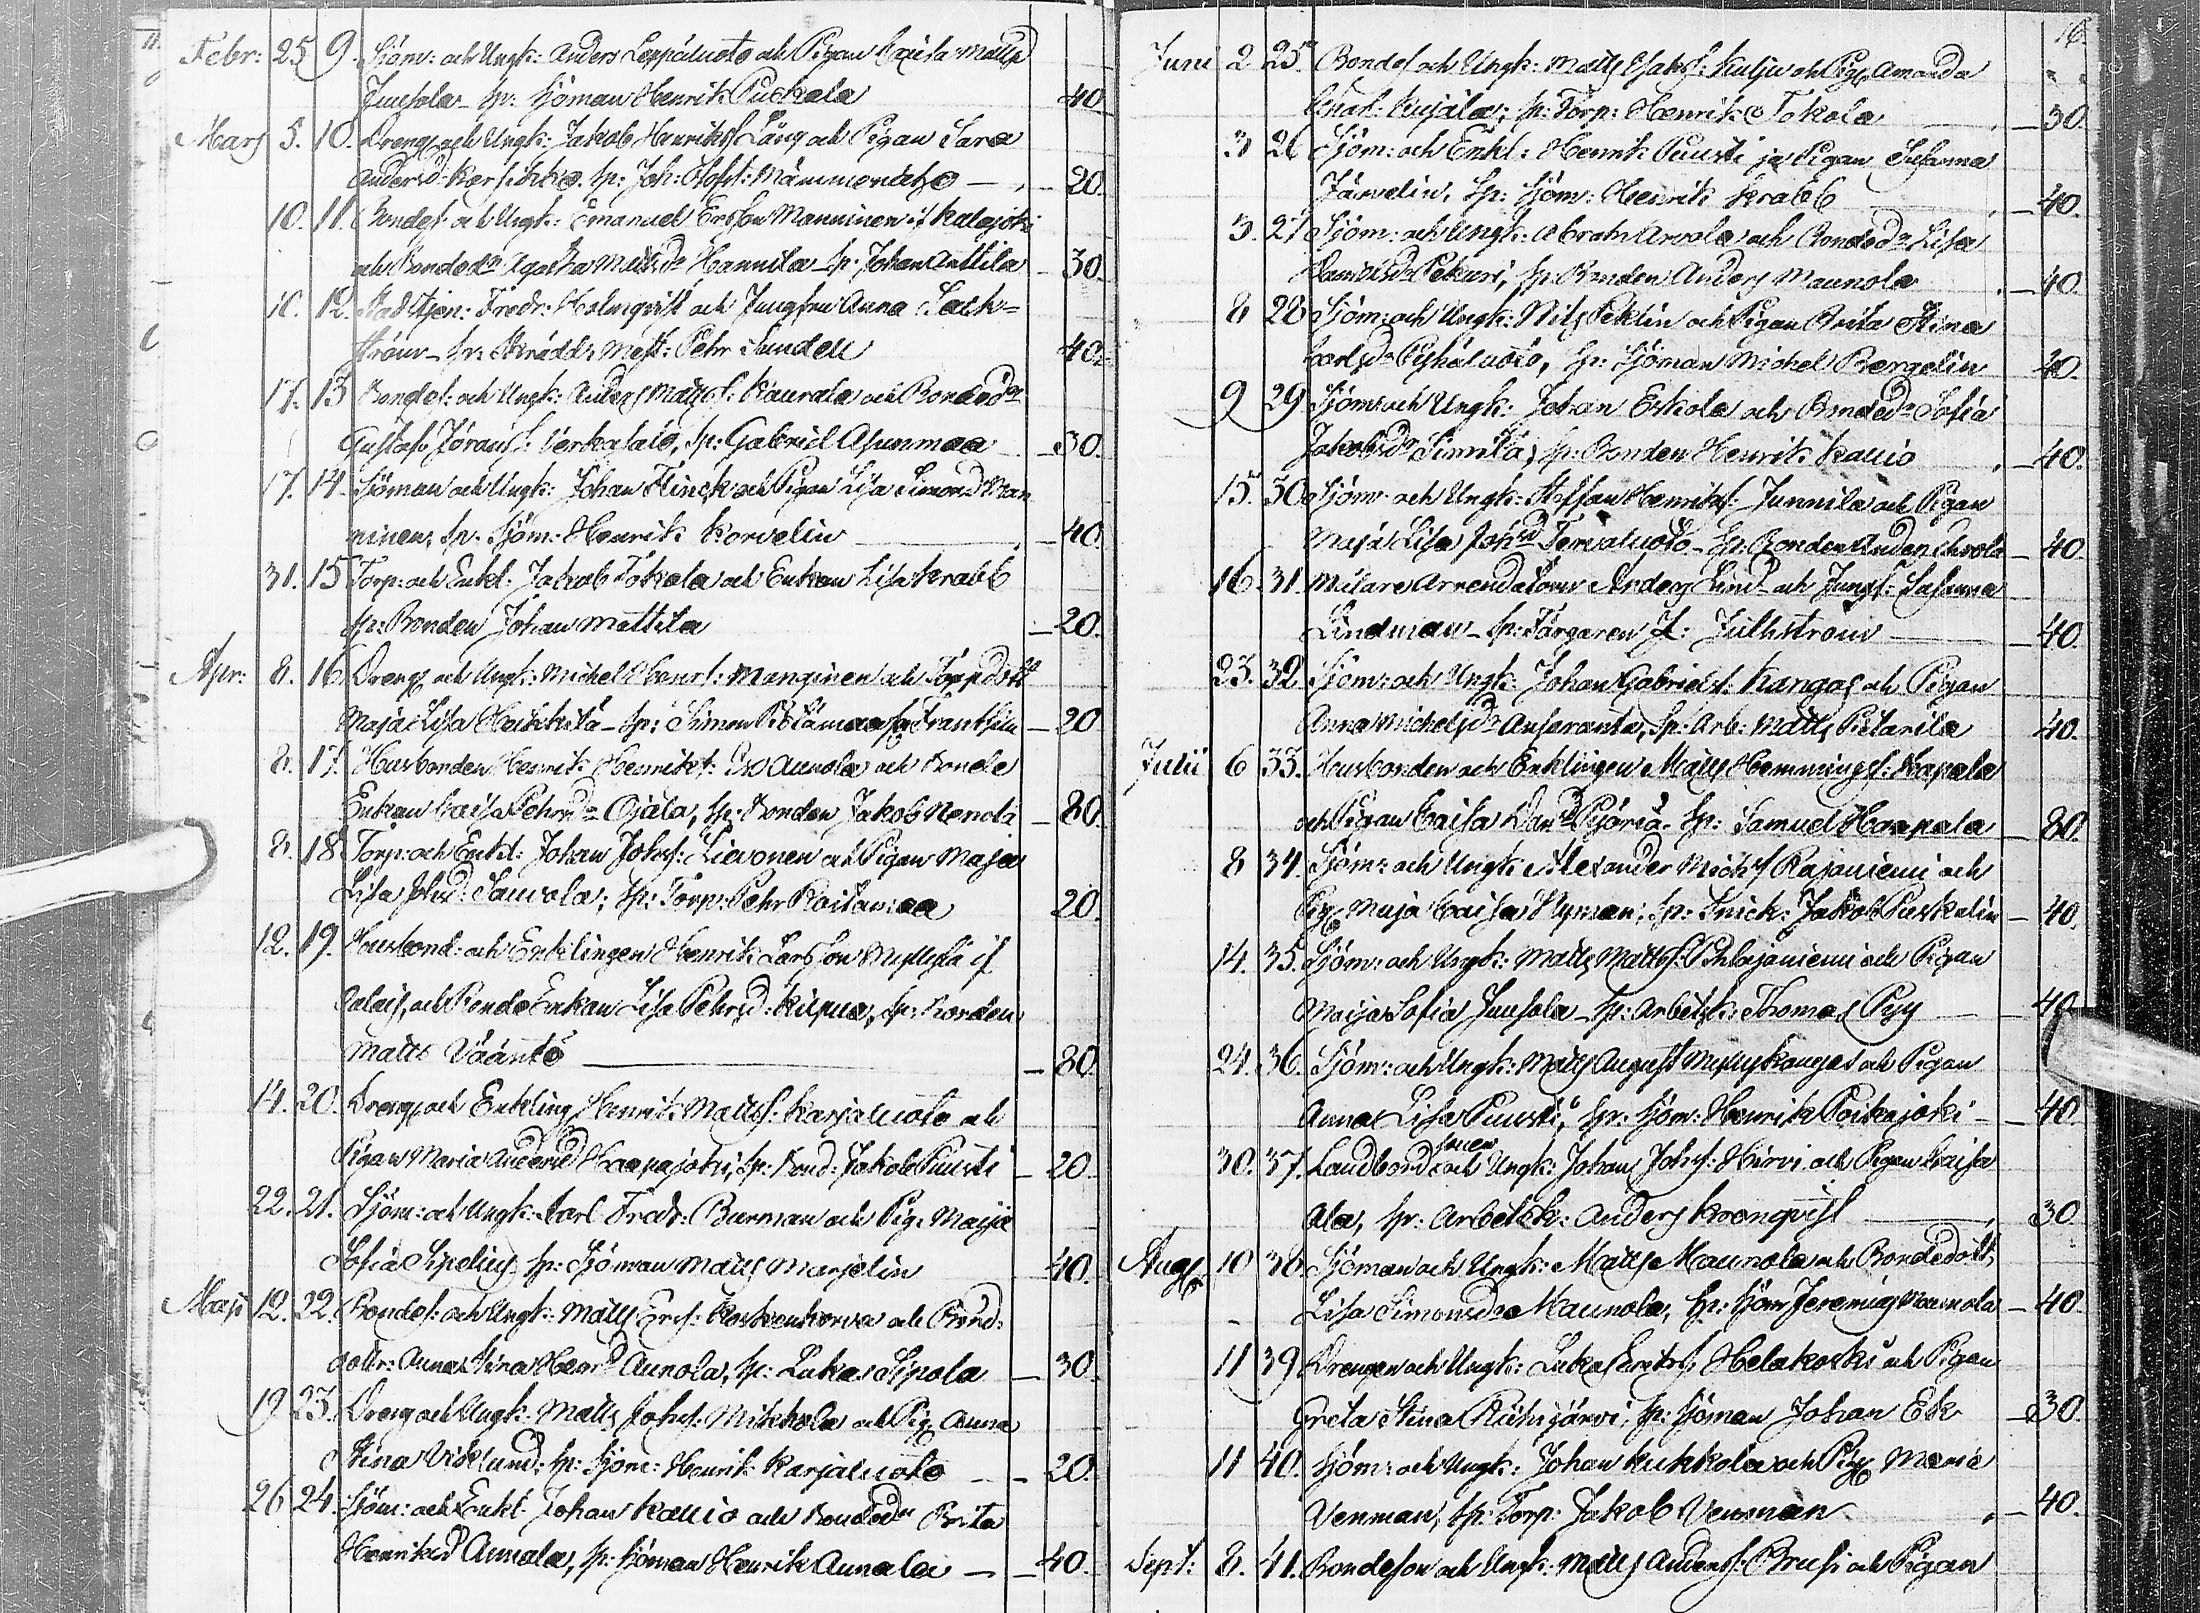 Febr: 25 9. Sjöm: och Ungk: Anders Leppäluoto och Pigan Caisa Mattsd
Juusola – sp: Sjöman Henrik Puskala 40
Mars 5. 10. Dreng och Ungk: Jakob Henrikss Lång och Pigan Sara
Andersd: Karsikko. sp: Joh: Olofss: Mämmönen – 20.
10. 11. Bondes: och Ungk: Emanuel Ersson Manninen if Kalajoki
och Bondedr Agatha Mattsdr Hannila – sp: Johan Anttila – 30.
10. 12. Stadstjen: Fredr: Holmqvist och Jungfru Anna Back=
ström – sp: Skrädd: Mest: Pehr Sundell 40.
17. 13 Bondes: och Ungk: Anders Matss: Kaurala och Bondedr
Gustafv Göransd: Verkasalo, sp: Gabriel Asunmaa 30.
17. 14. Sjöman och Ungk: Johan Flinck och Pigan Lisa Simonsd Man
ninen, sp: Sjöm: Henrik Korvelin – 40.
31. 15 Torp: och Enkl: Jakob Tokola och Enkan Lisa Krabb
sp: Bonden Johan Mattila – 20.
Apr: 8. 16. Dreng och Ungk: Michel Henrs: Manginen och Torpdottr
Maja Lisa Heikkilä – sp: Simon Frantsin – 20
8. 17. Husbonden Henrik Henrikss: Aunola och Bonde
Enkan Caisa Pehrsdr Ojala, sp: Bonden Jakob Nenola – 80.
8. 18 Torp: och Enkl: Johan Johss: Lievonen och Pigan Maja
Lisa Johsd: Sauvola; sp: Torp: Pehr Raitamaa 20.
12. 19. Husbond: och Enklingen Henrik Larsson Myllylä if
Calais, och Bonde Enkan Lisa Pehrsd: Kilpua, sp: Bonden
Matts Wääntö – 80.
14. 20. Dreng och Enkling Henrik Mattss: Karjaluoto och
Pigan Maria Andersd Haapajoki; sp: Bond: Jakob Puusti – 20.
22. 21. Sjöm: och Ungk: Carl Fredr: Burman och Pig: Maija
Sofia Sipelius sp: Sjöman Matts Marjelin 40.
Maji 12. 22. Bondes: och Ungk: Matts Ers: Koskenkorva och Bond:
dottr: Anna Stina Henrsd Aunola, sp: Lukas Sipola – 30.
19 23. Dreng och Ungk: Matts Johss: Mikkola och Pig Anna
Stina Viklund: sp: Sjöm: Henrik Karjaluoto – 20.
26 24. Sjöm: och Enkl. Johan Kallio och Bondedr Brita
Henriksd Annala, sp: Sjöman Henrik Annala – 40.
16.
Juni 2 25. Bondes och Ungk: Matts Esaks: Kulju och Pig Amanda
Kujala; sp: Torp: Henrik Tokola – 30.
3 26 Sjöm: och Enkl: Henrik Puusti ja Pigan Susanna
Järvelin, sp: Sjöm: Henrik Krabb – 40.
3. 27 Sjöm: och Ungk: Abrah Arvola och Bondedr Lisa
Pekuri, sp: Bonden Anders Maunola – 40.
8 28 Sjöm: och Ungk: Nils Peklin och Pigan Brita Stina
Carlsdr Pyhäluoto, sp: Sjöman Michel Bergelin 40.
9 29 Sjöm: och Ungk: Johan Eskola och Bondedr Sofia
Jakobsdr Simila, sp: Bonden Henrik Kallio – 40.
15. 30. Sjöm: och Ungk: Steffan Henrikss: Junnila och Pigan
Maja Lisa Johsd Tervaluoto – sp: Bonden – 40.
16. 31. Milare Arrendatorn Anders Lind och Jungf: Susanna
Lindman – sp: Färgaren J: Julhström – 40.
23. 32. Sjöm: och Ungk: Johan Gabriels: Kangas och Pigan
Anna Michelsdr Ansaranta, sp: Arb: Matts Pietarila 40.
Julii 6 33. Husbonden och Enklingen Matts Hemmings: Hapala
och Pigan Caisa Dansd Pyöriä. sp: Samuel Haapala – 80.
8 34. Sjöm: och Ungk: Alexander Michs: Rajaniemi och
Pig Maja Caisa Nyman: sp: Snick: Jakob Puskalin – 40.
14. 35. Sjöm: och Ungk: Matts Mattss: Pihlajaniemi och Pigan
Maija Sofia Juusola – sp: Arbetsk: Thomas Pyy – 40.
24. 36. Sjöm: och Ungk: Matts August Myllykangas och Pigan
Anna Lisa Puusti, sp: Sjöm: Henrik Poikajoki – 40.
30. 37. Landbond sonen och Ungk: Johan Johss: Hirvi och Pigan Caisa
Ala, sp: Arbetsk: Anders Kronqvist 30.
Aug 10 38. Sjöman och Ungk: Matts Maunola och Bondedottr
Lisa Simonsdr Maunola, sp: Sjöm Jeremias Maunola – 40.
11 39 Drengen och Ungk: Lukas Erikss: Helakoski och Pigan
Greta Stina Pitkäjärvi, sp: Sjöman Johan Ek – 30.
11 40. Sjöm: och Ungk: Johan Kukkola och Pig Maria
Venman, sp: Torp: Jakob Venman – 40.
Sept: 8. 41. Bondeson och Ungk: Matts Anderss: Prusi och Pigan